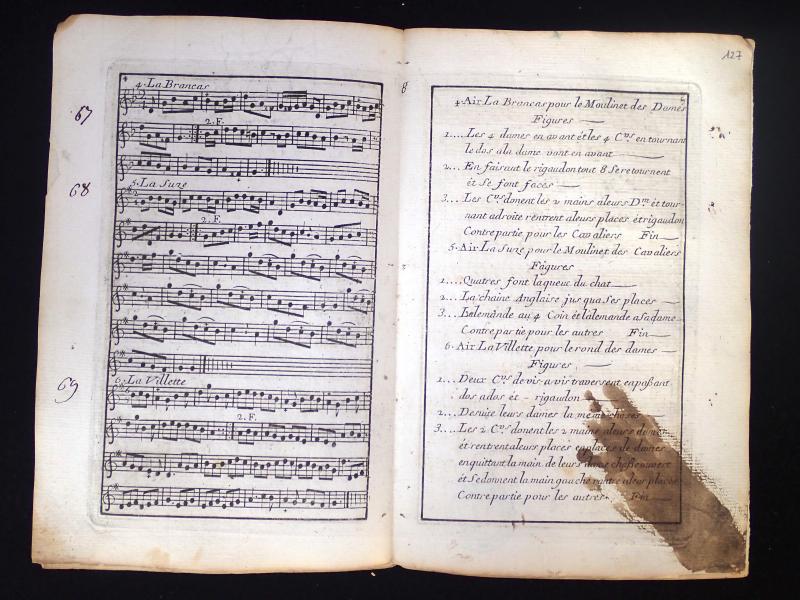 4
4. La Brancas
67
2. F.
68
5. La Suze
2. F.
69
6. La Villette
2. F.
127
8
5
4. Air La Brancas pour le Moulinet des Dames
Figures
1.... Les 4 dames en avant ét les 4 C.rs en tournant
le dos àla dame vont en avant
2... En faisant le rigaudon tout 8 Se retournent
ét Se font faces
3... Les C.rs donent les 2 mains aleurs D.es ét tour-
nant adroite rentrent aleurs places ét rigaudon
Contre partie pour les Cavaliers Fin
5. Air La Suze pour le Moulinet des Cavaliers
Figures
1.... Quatres font laqueue du chat
2... La chaine Anglaise jus qua Ses places
3... Balemande au 4 Coin ét lalemande asadame
Contre partie pour les autres Fin
6. Air La Villette pour le rond des dames
Figures
1... Deux C.rs de vis-a-vis traversent enpoßant
dos ados ét - rigaudon
2... Desuite leurs dames la meme choses
3... Les 2 C.rs donent les 2 mains aleurs dames
ét rentrent aleurs places enplaces de dames
enquittant la main de leurs dame
ét Sedonnent la main gauche aleur places
Contre partie pour les autres. Fin